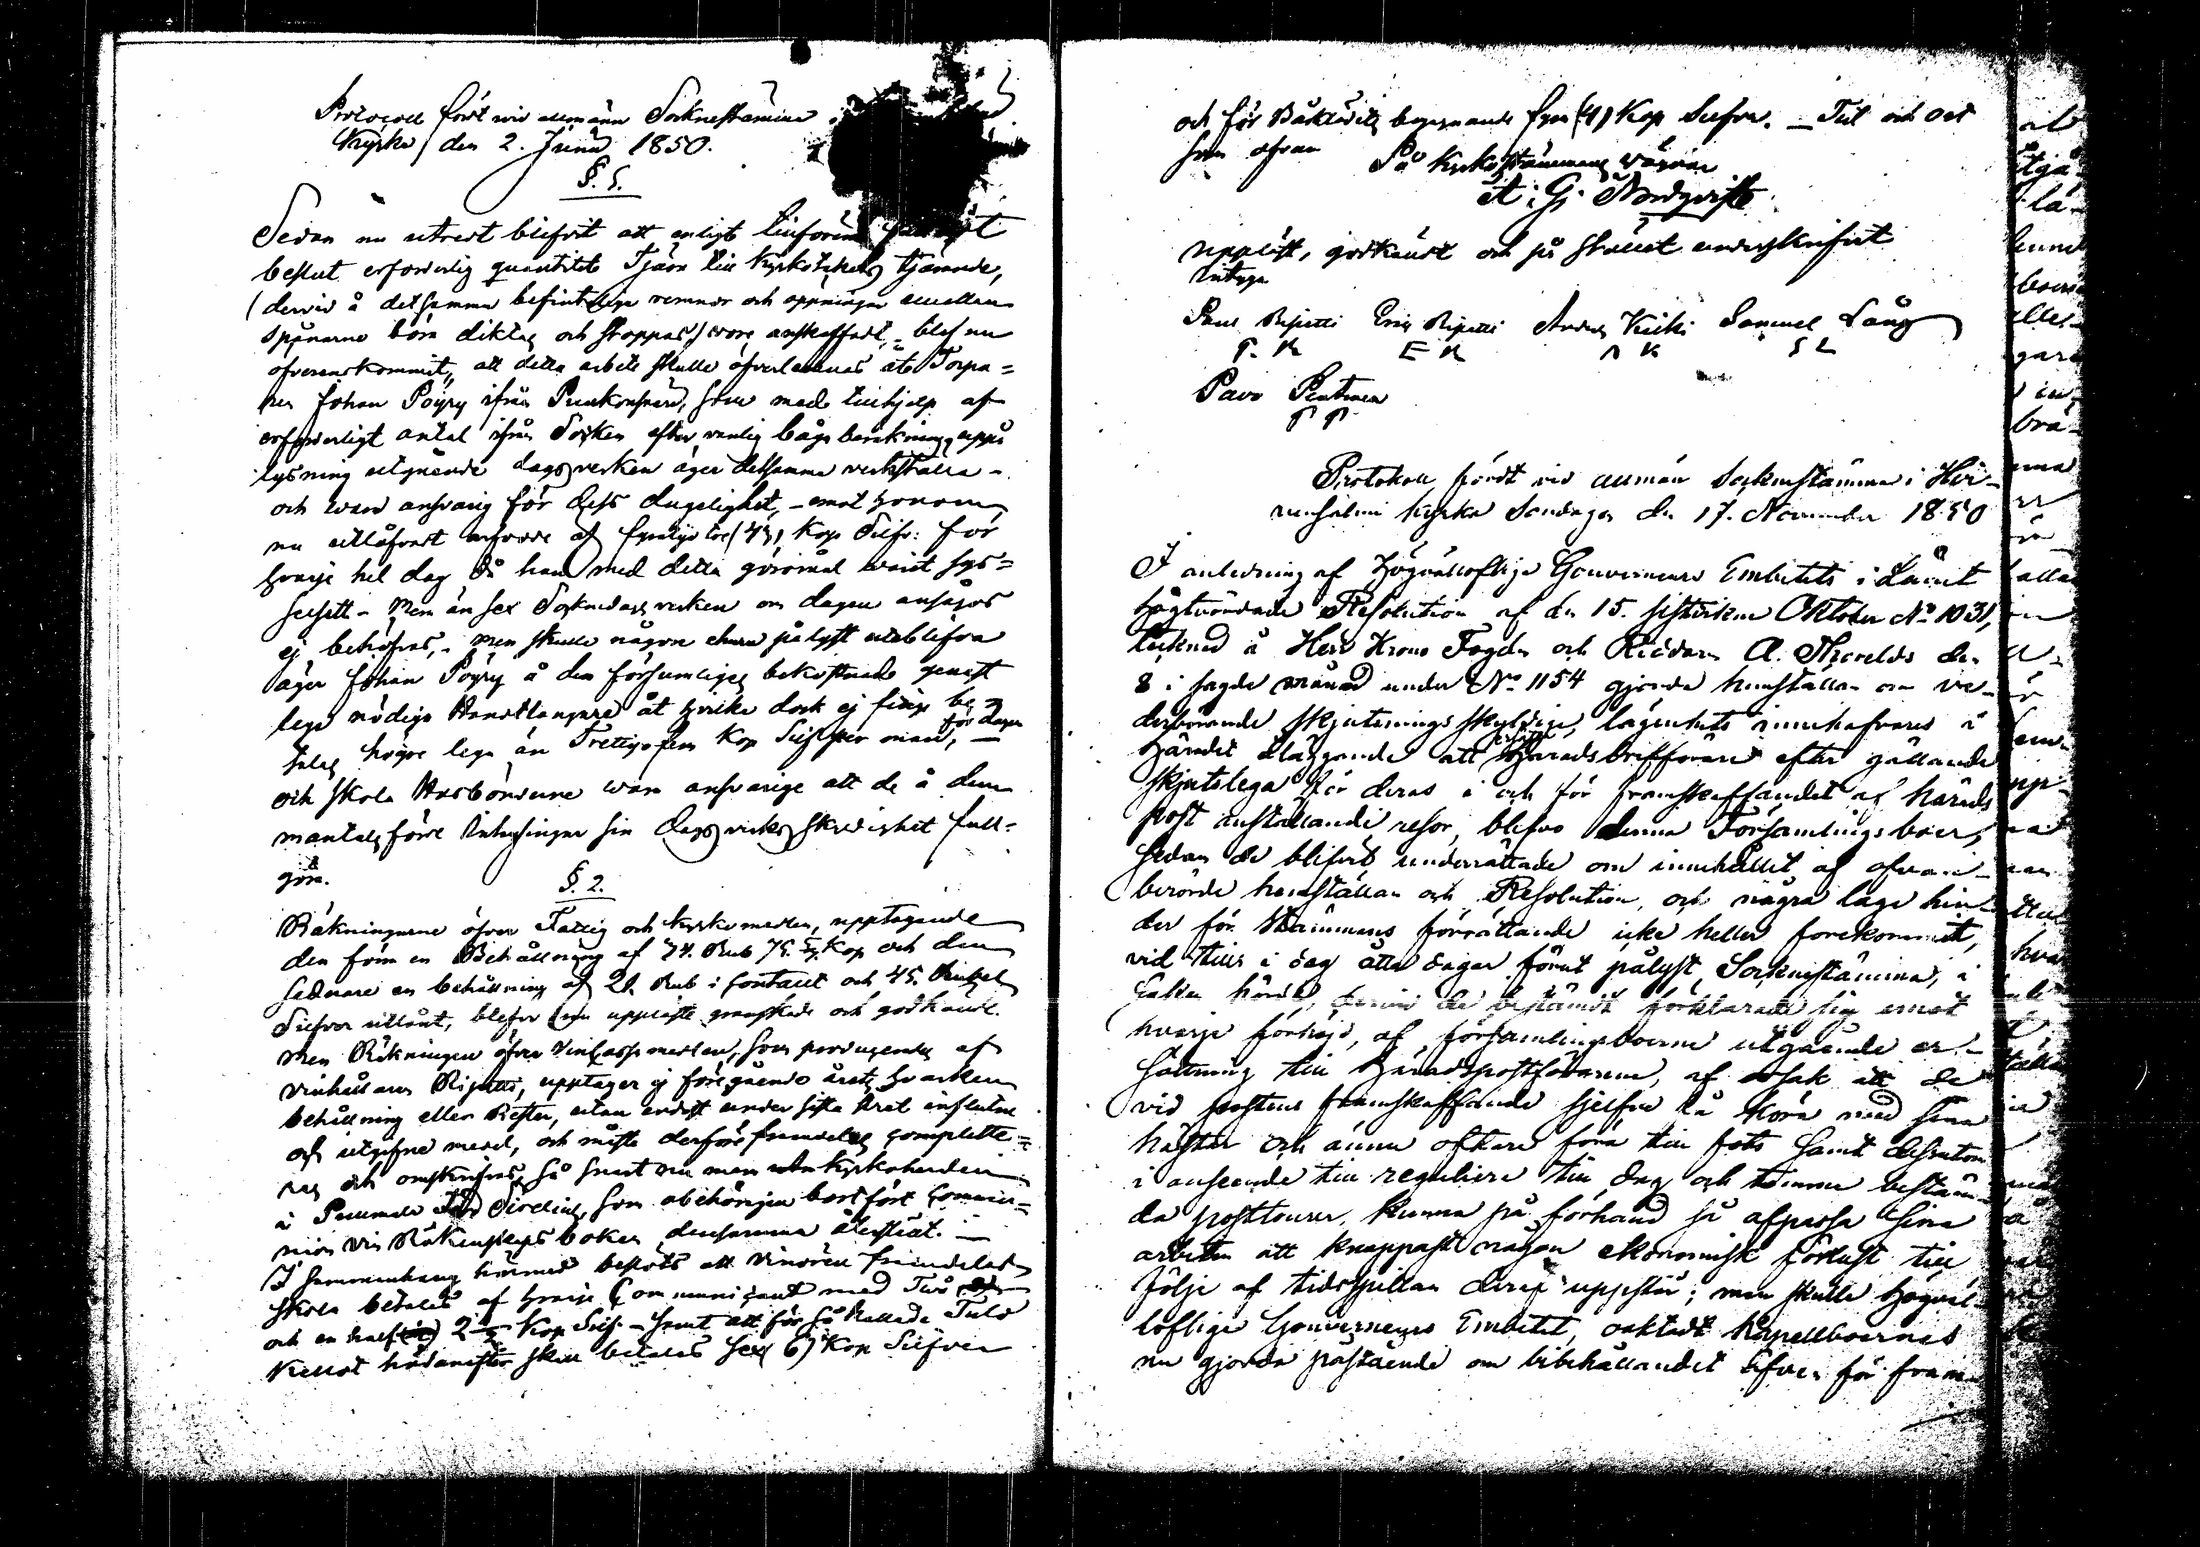 Protocoll fördt wid allmänn Sockne stämma i
Kyrka den 2. Junii 1850.
§. 1.
Sedan nu utredt blifvit att enligt tillförene
beslut erforderlig quantitet Tjära till Kyrkotakets tjärande,
(derwid å detsamma befinteliga remnor och öppningar emellan
spånarne böra diktas och stoppas) wore anskaffadt, blef nu
öfverenskommit, att detta arbete skulle öfverlemnas åt Torpa=
ren Johan Pöyry ifrån, som med tillhjelp af
erforderligt antal ifrån Socken efter vanlig beräkning
lysning utgående dagsverken äger detsamma verkställa -
och wara answarig för dess dugelighet, - emot honom
nu utlofvadt arfvode af fyratijo tre (43) Kop Silfr: för
hvarje hel dag då han med detta göromål warit sys=
selsatt - Mer än sex Sockne dagsverken om dagen ansågos
ej behöfvas, - men skulle någon denna pålyst utblifva
äger Johan Pöyry å den försumliges bekostnad genast
lega nödiga Handtlangare åt hvilka dock ej finge be=
talas högre lega än Trettiofem Kop Silf per man, för dagen
och skola Husbönderne wara answarige att de å dem
mantalsförde Inhysingar sin dagsverks skyldighet full=
göra.
§. 2.
Räkningarne öfver Fattig och Kyrkomedlen, upptagande
den förra en Behållning af 74. Rub 75. Kop och den
sednare en behållning af 21. Rub i contant och 45. Rubel
Silfver utlånt, blefvo nu uppläste granskade och godkände.
Men Räkningen öfver Vincasse medlen, som producerades af
vinhållaren Ripatti, upptager ej föregående årets hvarken
behållning eller Rester, utan endast under sista året influtne
och utgifne medel, och måste derföre framdeles completteras
och omskrifvas, så snart nu mera Kyrkoherden
i Pielavesi Sirelius, som obehörigen bortfört Commu=
nion vin Räkenskaps boken densamma återstält. -
I sammanhang härmed beslöts att vinören framdeles
skola betalas af hvarje Communicant med Två
och en half 2 ½ Kop Silf - samt att för så kallade Tulo
Kellot hädanefter skall betalas sex (6) Kop Silfver
och för Båktårets begagnande fyra (4) Kop Silfver. - Tid och ort
som ofvan På Kyrkostämmans vägnar
A: G: Nordqvist
Uppläst, godkändt och på stället underskrifvit
intyga
Paul Ripatti Eric Ripatti Anders Kuikka Samuel Lång
P. R E R A K S L
Pavo Pentinen
P P
Protokoll, fördt vid allmän Sockenstämma i Hir-
vensalmi kyrka Söndagen den 17. November 1850
I anledning af Högvällofliga Gouverneurs Embetets i Länet
högtvördade Resolution af den 15. sistvikne Oktober No 1031,
tecknad å Herr Krono Fogden och Riddaren A. Thorelds den
8 i sagde månad under No 1154 gjorda hemställan om ve-
derbörande skjutsningsskyldige, lägenhets innehafvares i
häradet åläggande att ersätta Häradsbrefförare efter gällande
skjutslega för deras i och för framskaffandet af härads
post anställande resor, blefvo denna Församlings boer,
sedan de blifvit underrättade om innehållet af ofvan-
berörde hemställan och Resolution, och några laga hin-
der för Stämmans förrättande icke heller förekommit,
vid till i dag åtta dagar förut pålyst, Sockenstämma, i
saken hörde, hvarvid de bestämdt förklarade sig emot
hvarje förhöjd, af församlingsboerne utgående er-
sättning till Häradspostförarne, af orsak att de
vid postens framskaffande sjelfve få köra med sina
hästar och ännu oftare föra till fots samt dessutom
i anseende till reguliera till dag och timme bestäm-
da posttourer, kunna på förhand så afpassa sina
arbeten att knappast någon ekonomisk förlust till
följe af tidsspillan deraf uppstår; men skulle högväl-
loflige Gouverneurs Embetet, oaktadt kapellboernes
nu gjorda påstående om bibehållandet äfven för fram-